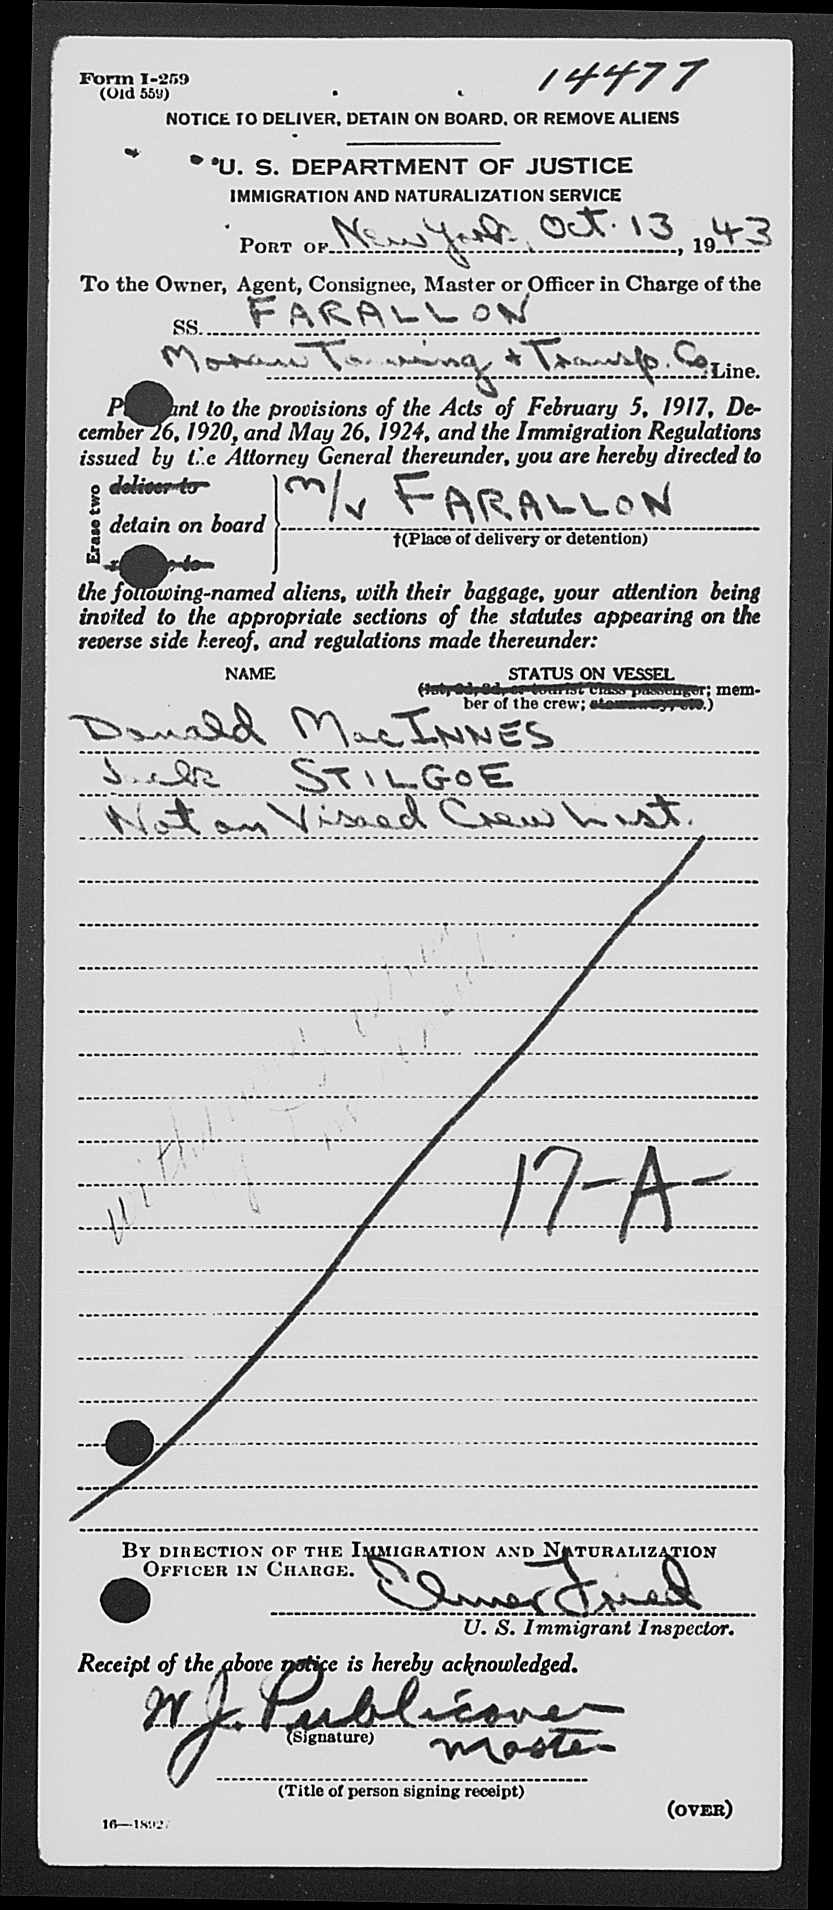 Form I-259
(Old 559)
14477
NOTICE TO DELIVER, DETAIN ON BOARD, OR REMOVE ALIENS
U. S. DEPARTMENT OF JUSTICE
IMMIGRATION AND NATURALIZATION SERVICE
PORT OF New York, Oct. 13, 1943
To the Owner, Agent, Consignee, Master or Officer in Charge of the
SS. FARALLON
Moran Towing & Transp. Co. Line.
Pursuant to the provisions of the Acts of February 5, 1917, De-
cember 26, 1920, and May 26, 1924, and the Immigration Regulations
issued by the Attorney General thereunder, you are hereby directed to
Erase two
deliver to
detain on board
m/v FARALLON
†(Place of delivery or detention)
the following-named aliens, with their baggage, your attention being
invited to the appropriate sections of the statutes appearing on the
reverse side hereof, and regulations made thereunder:
NAME STATUS ON VESSEL
(1st, 2d, 3d, or tourist class passenger; mem-
ber of the crew; stowaway, etc.)
Donald MacINNES
Jack STILGOE
Not on Visaed Crew List.
17-A-
BY DIRECTION OF THE IMMIGRATION AND NATURALIZATION
OFFICER IN CHARGE.
Elmer Fried
U. S. Immigrant Inspector.
Receipt of the above notice is hereby acknowledged.
W J. Publicover
(Signature)
Master
(Title of person signing receipt)
(OVER)
16—18927